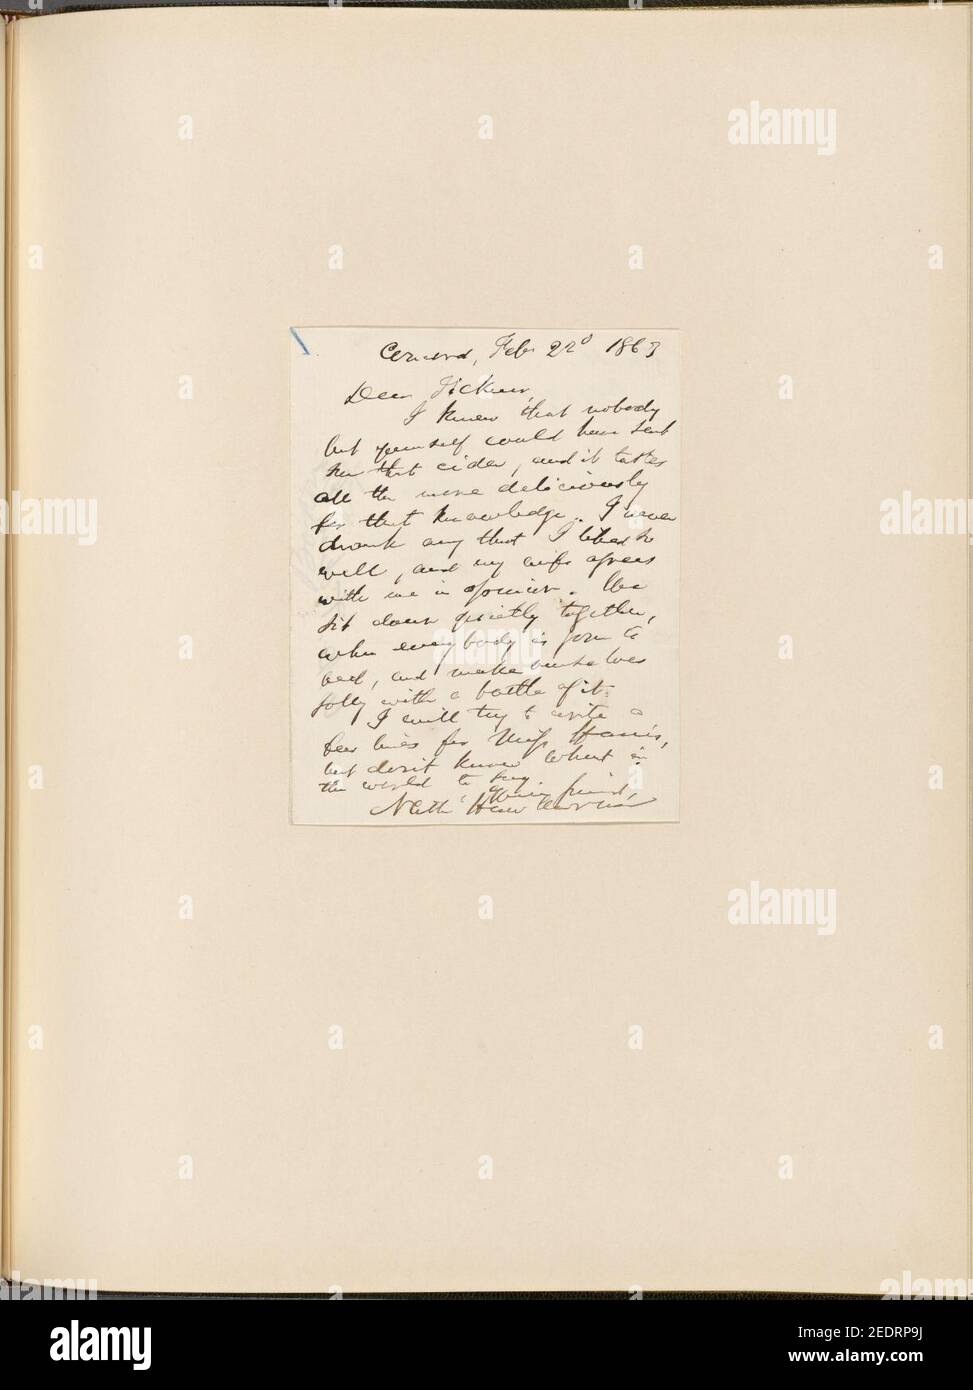 Concord, Feb 22d 1863
Dear Ticknor,
I knew that nobody
but yourself could have sent
me that cider, and it tastes
all the more deliciously
for that knowledge. I never
drank any that I liked so
well, and my wife agrees
with me in opinion. We
sit down quietly together,
when everybody is gone to
bed, and make ourselves
jolly with a bottle of it.
I will try to write a
few lines for Miss Harris,
but don't know what in
the world to say.
Your friend,
Nath Hawthorne
alamy
Image ID: 2EDRP9J
www.alamy.com